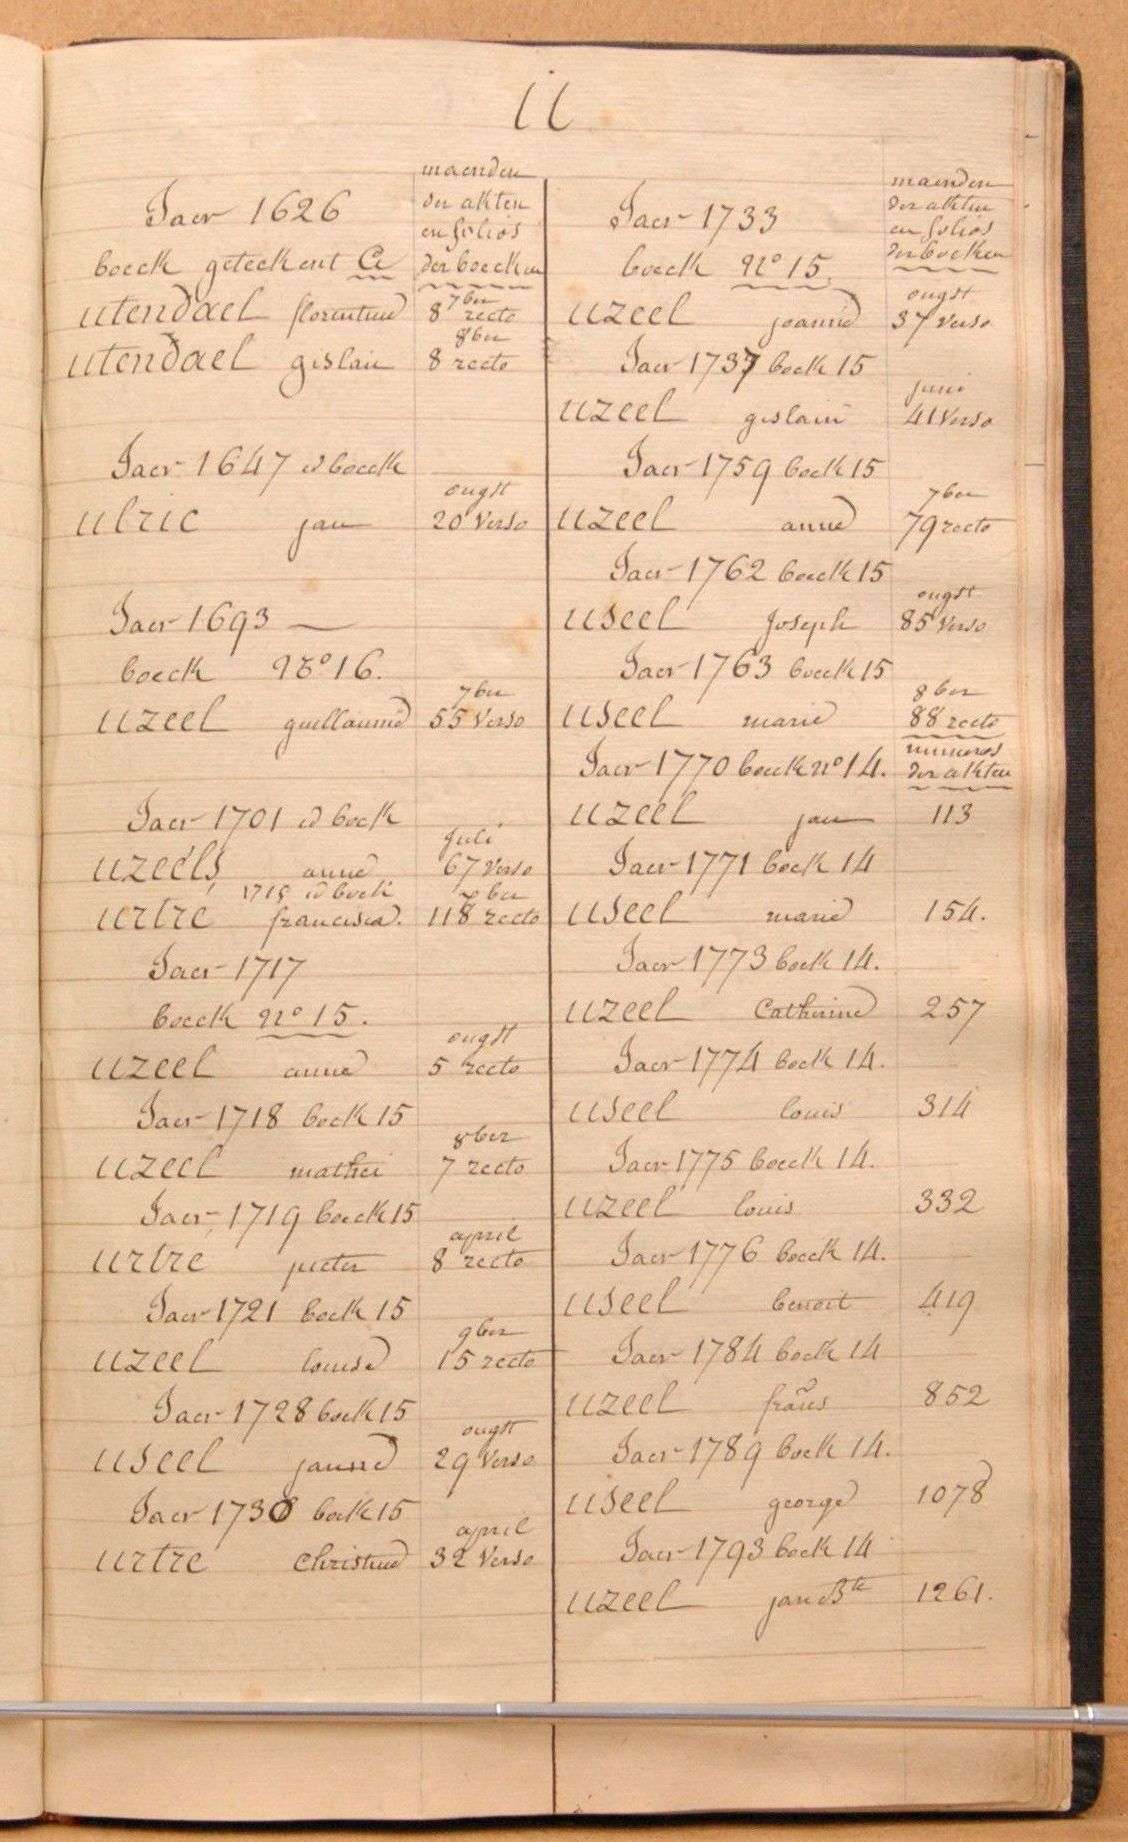 U
maenden
der akten
en folios
der boecken
Jaer 1626
boeck geteekent
utendael florentine 7ber 8 recto
utendael gislain 8ber 8 recto
Jaer 1647 id boeck
ulric jan ougst 20 verso
Jaer 1693 —
boeck No 16.
uzeel guillaume 7ber 55 verso
Jaer 1701 id boek
uzeels anne Juli 67 verso
1715 id boek
urtre francisca. 7ber 118 recto
Jaer 1717
boeck no 15.
uzeel anne ougst 5 recto
Jaer 1718 boek 15
uzeel mathei 8ber 7 recto
Jaer 1719 boeck 15
urtre pieter april 8 recto
Jaer 1721 boek 15
uzeel louise 9ber 15 recto
Jaer 1728 boek 15
useel jeanne ougst 29 verso
Jaer 1730 boek 15
urtre Christine april 32 verso
maenden
der akten
en folios
der boeken
Jaer 1733
boeck no 15
uzeel joanne ougst 37 verso
Jaer 1737 boek 15
uzeel gislain juni 41 verso
Jaer 1759 boek 15
uzeel anne 7ber 79 recto
Jaer 1762 boeck 15
useel Joseph ougst 85 verso
Jaer 1763 boeck 15
useel marie 8ber 88 recto
Jaer 1770 boeck no 14. numeros der akten
uzeel jan 113
Jaer 1771 boek 14
useel marie 154.
Jaer 1773 boek 14.
uzeel Catherine 257
Jaer 1774 boek 14.
useel louis 314
Jaer 1775 boeck 14.
uzeel louis 332
Jaer 1776 boeck 14.
useel benoit 419
Jaer 1784 boek 14
uzeel frans 852
Jaer 1789 boek 14.
useel george 1078
Jaer 1793 boek 14
uzeel jan Bte 1261.